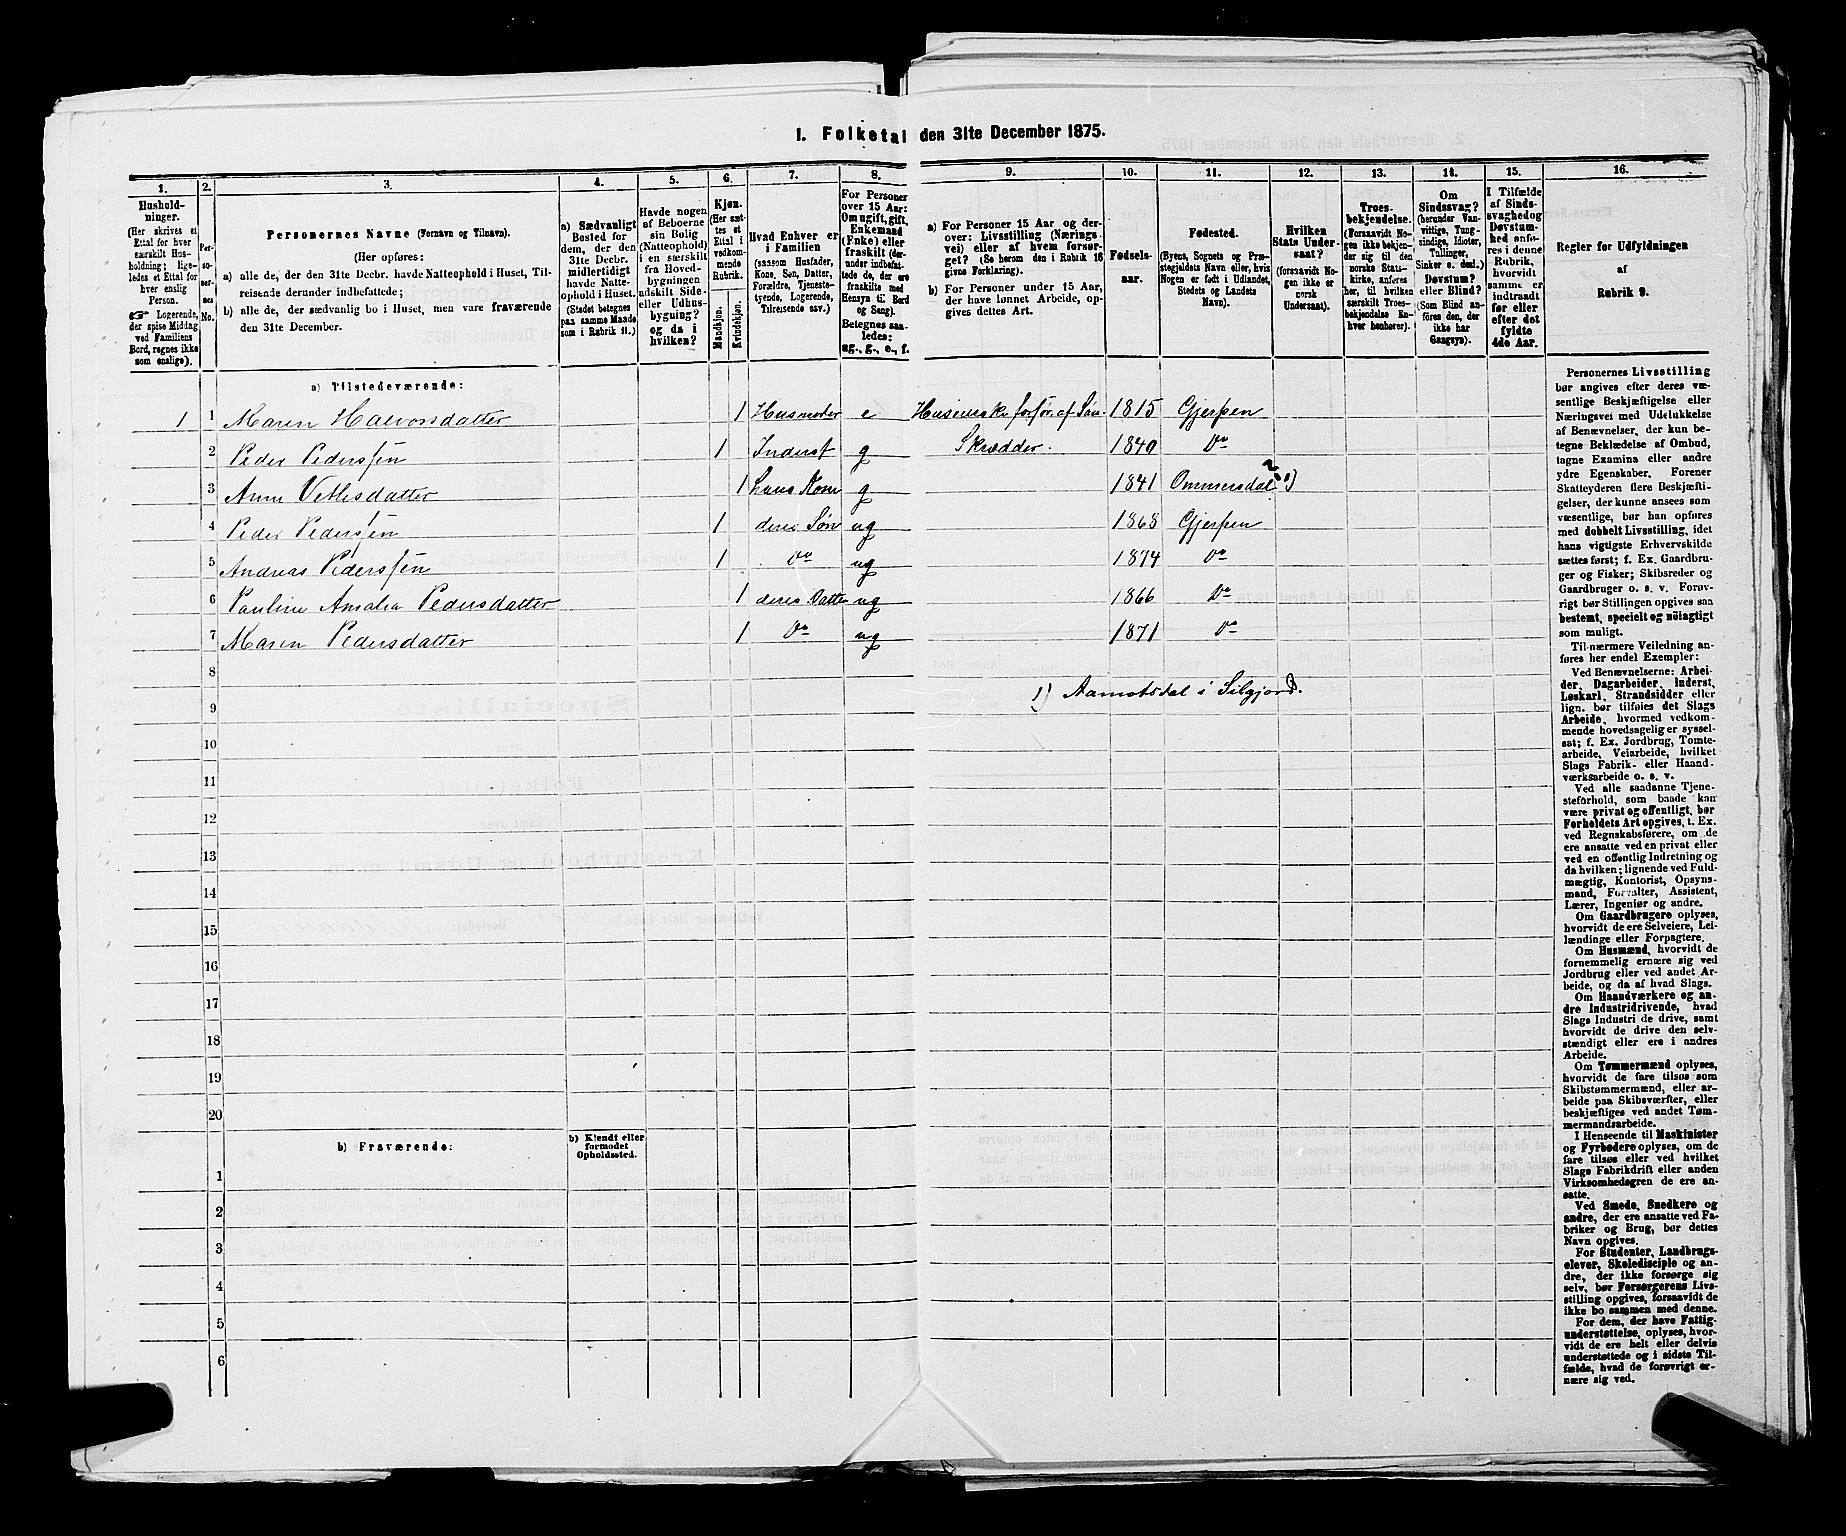 1. Folketal den 31te December 1875.
1. 2. 3. 4. 5. 6. 7. 8. 9. 10. 11. 12. 13. 14. 15. 16.
Hushold-
ninger.
(Her skrives et
Ettal for hver
særskilt Hus-
holdning; lige-
ledes et Ettal for
hver enslig
Person.
☞ Logerende,
der spise Middag
ved Familiens
Bord, regnes ikke
som enslige).
Per-
so-
ner-
nes
No.
Personernes Navne (Fornavn og Tilnavn).
(Her opføres:
a) alle de, der den 31te Decbr. havde Natteophold i Huset, Til-
reisende derunder indbefattede;
b) alle de, der sædvanlig bo i Huset, men vare fraværende
den 31te December.
a) Sædvanligt
Bosted for
dem, der den
31te Decbr.
midlertidigt
havde Natte-
ophold i Huset.
(Stedet betegnes
paa samme Maade
som i Rubrik 11.)
Havde nogen
af Beboerne
sin Bolig
(Natteophold)
i en særskilt
fra Hoved-
bygningen
adskilt Side-
eller Udhus-
bygning?
og da i
hvilken?
Kjøn.
(Her sæt-
tes et
Ettal i
vedkom-
mende
Rubrik.
Mandkjøn.
Kvindekjøn.
Hvad Enhver er
i Familien
(saasom Husfader,
Kone, Søn, Datter,
Forældre, Tjeneste-
tyende, Logerende,
Tilreisende osv.)
For Personer
over 15 Aar:
Om ugift, gift,
Enkemand
(Enke) eller
fraskilt (der-
under indbefat-
tede de, der ere
fraskilte med
Hensyn til Bord
og Seng).
Betegnes saa-
ledes:
ug., g., e., f.
a) For Personer 15 Aar og der-
over: Livsstilling (Nærings-
vei) eller af hvem forsør-
get? (Se herom den i Rubrik 16
givne Forklaring).
b) For Personer under 15 Aar,
der have lønnet Arbeide, op-
gives dettes Art.
Fødsels-
aar.
Fødested.
(Byens, Sognets og Præ-
stegjeldets Navn eller, hvis
Nogen er født i Udlandet,
Stedets og Landets
Navn).
Hvilken
Stats Under-
saat?
(forsaavidt No-
gen ikke er
norsk
Undersaat).
Troes-
bekjendelse.
(Forsaavidt No-
gen ikke bekjen-
der sig til den
norske Stats-
kirke, anføres
her, til hvilken
særskilt Troes-
bekjendelse En-
hver henhører).
Om
Sindssvag?
(herunder Van-
vittige, Tung-
sindige, Idioter,
Tullinger,
Sinker o. desl.)
Døvstum?
eller Blind?
(Som Blind an-
føres den, der
ikke har
Gangsyn).
I Tilfælde
af Sinds-
svaghed og
Døvstum-
hed anfø-
res i denne
Rubrik,
hvorvidt
samme er
indtraadt
før eller
efter det
fyldte
4de Aar.
Regler for Udfyldningen
af
Rubrik 9.
a) Tilstedeværende:
1 1 Maren Halvorsdatter 1 Husmoder e Husenske forsør. af Søn 1815 Gjerpen
2 Peder Pederssen 1 Inderst g Skrædder. 1840 Do
3 Anne Vetlesdatter 1 hans Kone g 1841 Ommersdal ? 1)
4 Peder Pederssen 1 deres Søn ug 1868 Gjerpen
5 Andreas Pederssen 1 Do ug 1874 Do
6 Pauline Amalia Pedersdatter 1 deres Datter ug 1866 Do
7 Maren Pedersdatter 1 Do ug 1871 Do
8
1) Aamotsdal i Silgjord.
9
10
11
12
13
14
15
16
17
18
19
20
b) Fraværende:
b) Kjendt eller
formodet
Opholdssted.
1
2
3
4
5
6
Personernes Livsstilling
bør angives efter deres væ-
sentlige Beskjæftigelse eller
Næringsvei med Udelukkelse
af Benævnelser, der kun be-
tegne Beklædelse af Ombud,
tagne Examina eller andre
ydre Egenskaber. Forener
Skatteyderen flere Beskjæfti-
gelser, der kunne ansees som
væsentlige, bør han opføres
med dobbelt Livsstilling, idet
hans vigtigste Erhvervskilde
sættes først; f. Ex. Gaardbru-
ger og Fisker; Skibsreder og
Gaardbruger o. s. v. Forøv-
rigt bør Stillingen opgives saa
bestemt, specielt og nøiagtigt
som muligt.
Til nærmere Veiledning an-
føres her endel Exempler:
Ved Benævnelserne: Arbei-
der, Dagarbeider, Inderst,
Løskarl, Strandsidder eller
lign. bør tilføies det Slags
Arbeide, hvormed vedkom-
mende hovedsagelig er syssel-
sat; f. Ex. Jordbrug, Tomte-
arbeide, Veiarbeide, hvilket
Slags Fabrik- eller Haand-
værksarbeide o. s. v.
Ved alle saadanne Tjene-
steforhold, som baade kan
være privat og offentligt, bør
Forholdets Art opgives, t. Ex.
ved Regnskabsførere, om de
ere ansatte ved en privat eller
ved en offentlig Indretning og
da hvilken; lignende ved Fuld-
mægtig, Kontorist, Opsyns-
mand, Forvalter, Assistent,
Lærer, Ingeniør og andre.
Om Gaardbrugere oplyses,
hvorvidt de ere Selveiere, Lei-
lændinge eller Forpagtere.
Om Husmænd, hvorvidt de
fornemmelig ernære sig ved
Jordbrug eller ved andet Ar-
beide, og da af hvad Slags.
Om Haandværkere og an-
dre Industridrivende, hvad
Slags Industri de drive, samt
hvorvidt de drive den selv-
stændigt eller ere i andres
Arbeide.
Om Tømmermænd oplyses,
hvorvidt de fare tilsøs som
Skibstømmermænd, eller ar-
beide paa Skibsværfter, eller
beskjæftiges ved andet Tøm-
mermandsarbeide.
I Henseende til Maskinister
og Fyrbødere oplyses, om de
fare tilsøs eller ved hvilket
Slags Fabrikdrift eller anden
Virksomhedsgren de ere an-
satte.
Ved Smede, Snedkere og
andre, der ere ansatte ved Fa-
briker og Brug, bør dettes
Navn opgives.
For Studenter, Landbrugs-
elever, Skoledisciple og an-
dre, der ikke forsørge sig
selv, bør Forsørgerens Livs-
stilling opgives, forsaavidt de
ikke bo sammen med denne.
For dem, der have Fattig-
understøttelse, oplyses, hvor-
vidt de ere helt eller delvis
understøttede og i sidste Til-
fælde, hvad de forøvrigt er-
nære sig ved.